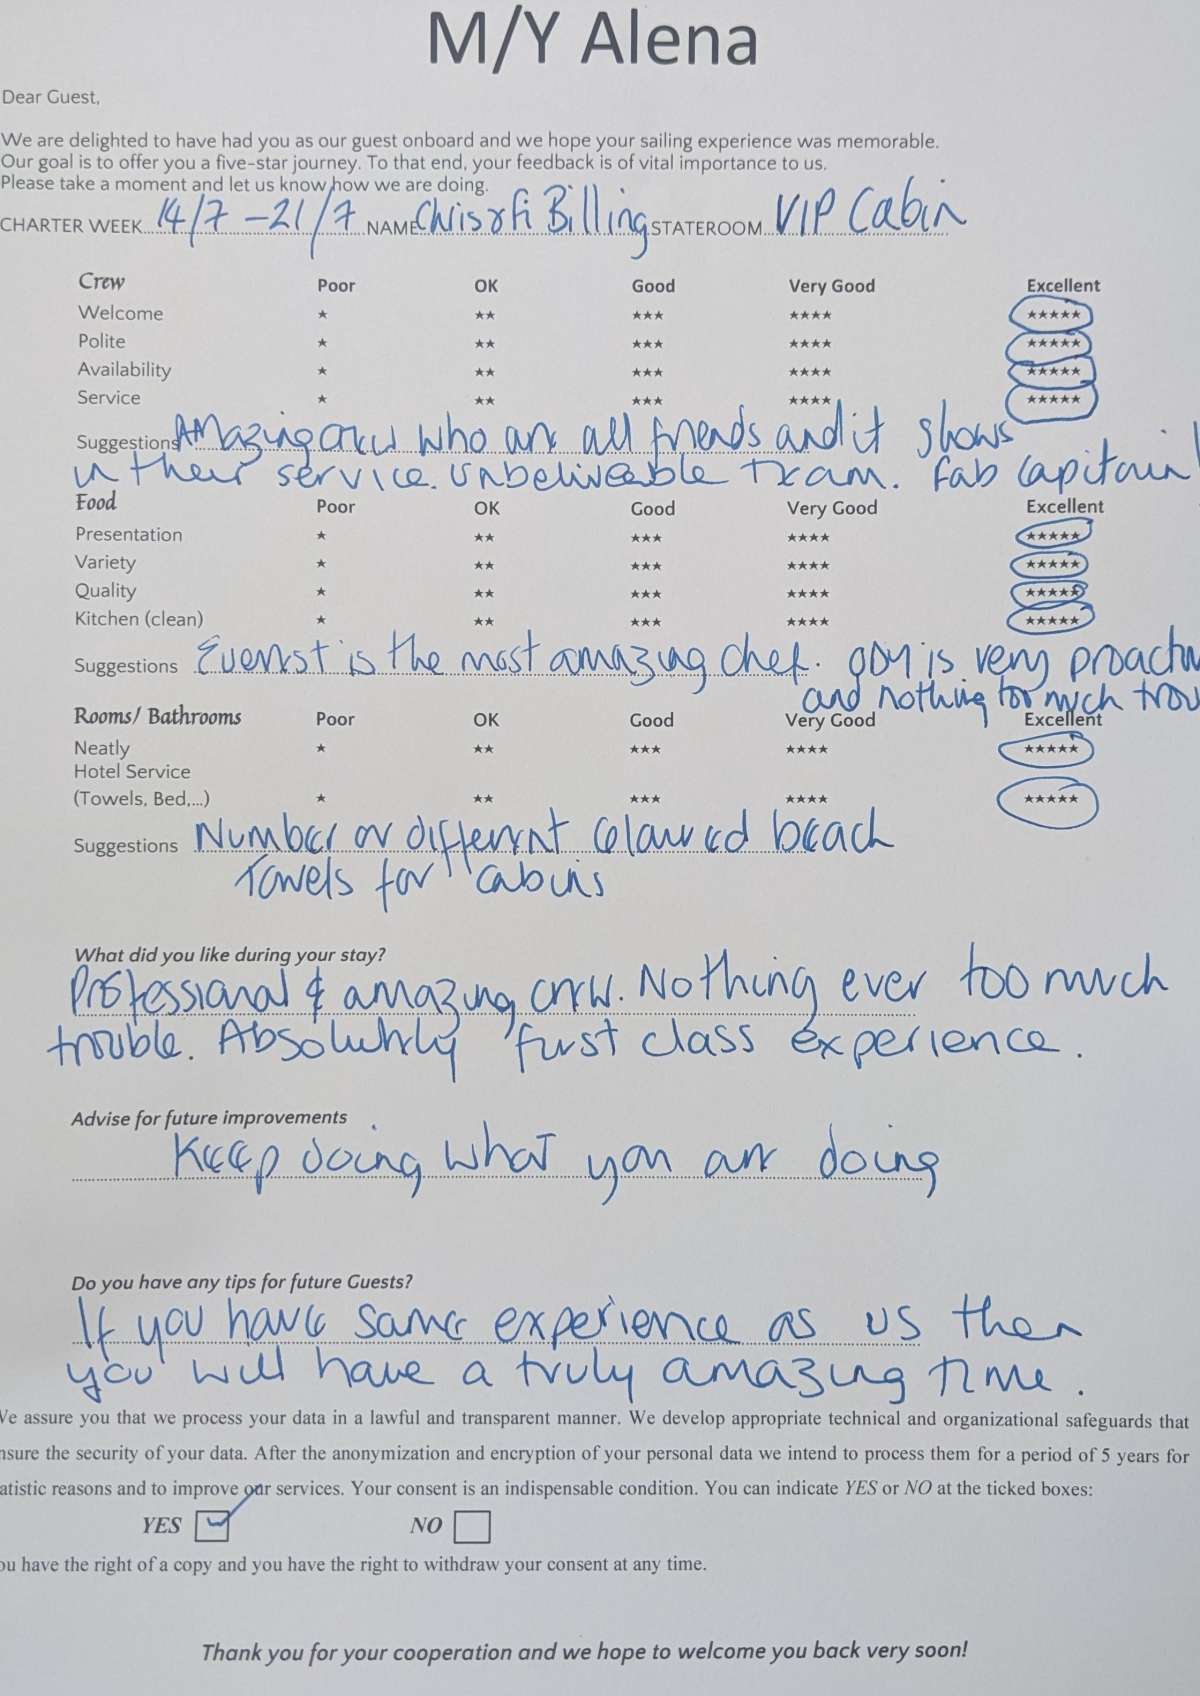 M/Y Alena
Dear Guest,
We are delighted to have had you as our guest onboard and we hope your sailing experience was memorable.
Our goal is to offer you a five-star journey. To that end, your feedback is of vital importance to us.
Please take a moment and let us know how we are doing.
CHARTER WEEK 14/7 - 21/7 NAME Chris & Fi Billing STATEROOM VIP Cabin
Crew Poor OK Good Very Good Excellent
Welcome ★ ★★ ★★★ ★★★★ ★★★★★
Polite ★ ★★ ★★★ ★★★★ ★★★★★
Availability ★ ★★ ★★★ ★★★★ ★★★★★
Service ★ ★★ ★★★ ★★★★ ★★★★★
Suggestions Amazing crew who are all friends and it shows
in their service. Unbeliveable team. Fab Capitain!
Food Poor OK Good Very Good Excellent
Presentation ★ ★★ ★★★ ★★★★ ★★★★★
Variety ★ ★★ ★★★ ★★★★ ★★★★★
Quality ★ ★★ ★★★ ★★★★ ★★★★★
Kitchen (clean) ★ ★★ ★★★ ★★★★ ★★★★★
Suggestions is the most amazing chef. is very proactiv
and nothing too much trou
Rooms/ Bathrooms Poor OK Good Very Good Excellent
Neatly ★ ★★ ★★★ ★★★★ ★★★★★
Hotel Service
(Towels, Bed,...) ★ ★★ ★★★ ★★★★ ★★★★★
Suggestions Number or different coloured beach
Towels for cabins
What did you like during your stay?
Professional & amazing crew. Nothing ever too much
trouble. Absolutely first class experience.
Advise for future improvements
Keep doing what you are doing
Do you have any tips for future Guests?
If you have same experience as us then
you will have a truly amazing time.
We assure you that we process your data in a lawful and transparent manner. We develop appropriate technical and organizational safeguards that
nsure the security of your data. After the anonymization and encryption of your personal data we intend to process them for a period of 5 years for
atistic reasons and to improve our services. Your consent is an indispensable condition. You can indicate YES or NO at the ticked boxes:
YES NO
ou have the right of a copy and you have the right to withdraw your consent at any time.
Thank you for your cooperation and we hope to welcome you back very soon!